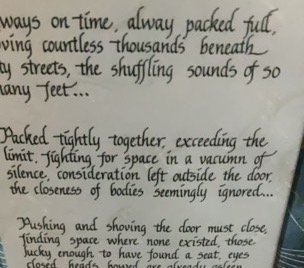 ways on time, alway packed full,
ving countless thousands beneath
ty streets, the shuffling sounds of so
any feet...
Packed tightly together, exceeding the
limit, fighting for space in a vacumn of
silence, consideration left outside the door,
the closeness of bodies seemingly ignored...
Pushing and shoving the door must close,
finding space where none existed, those
lucky enough to have found a seat, eyes
closed, heads bowed are already asleep